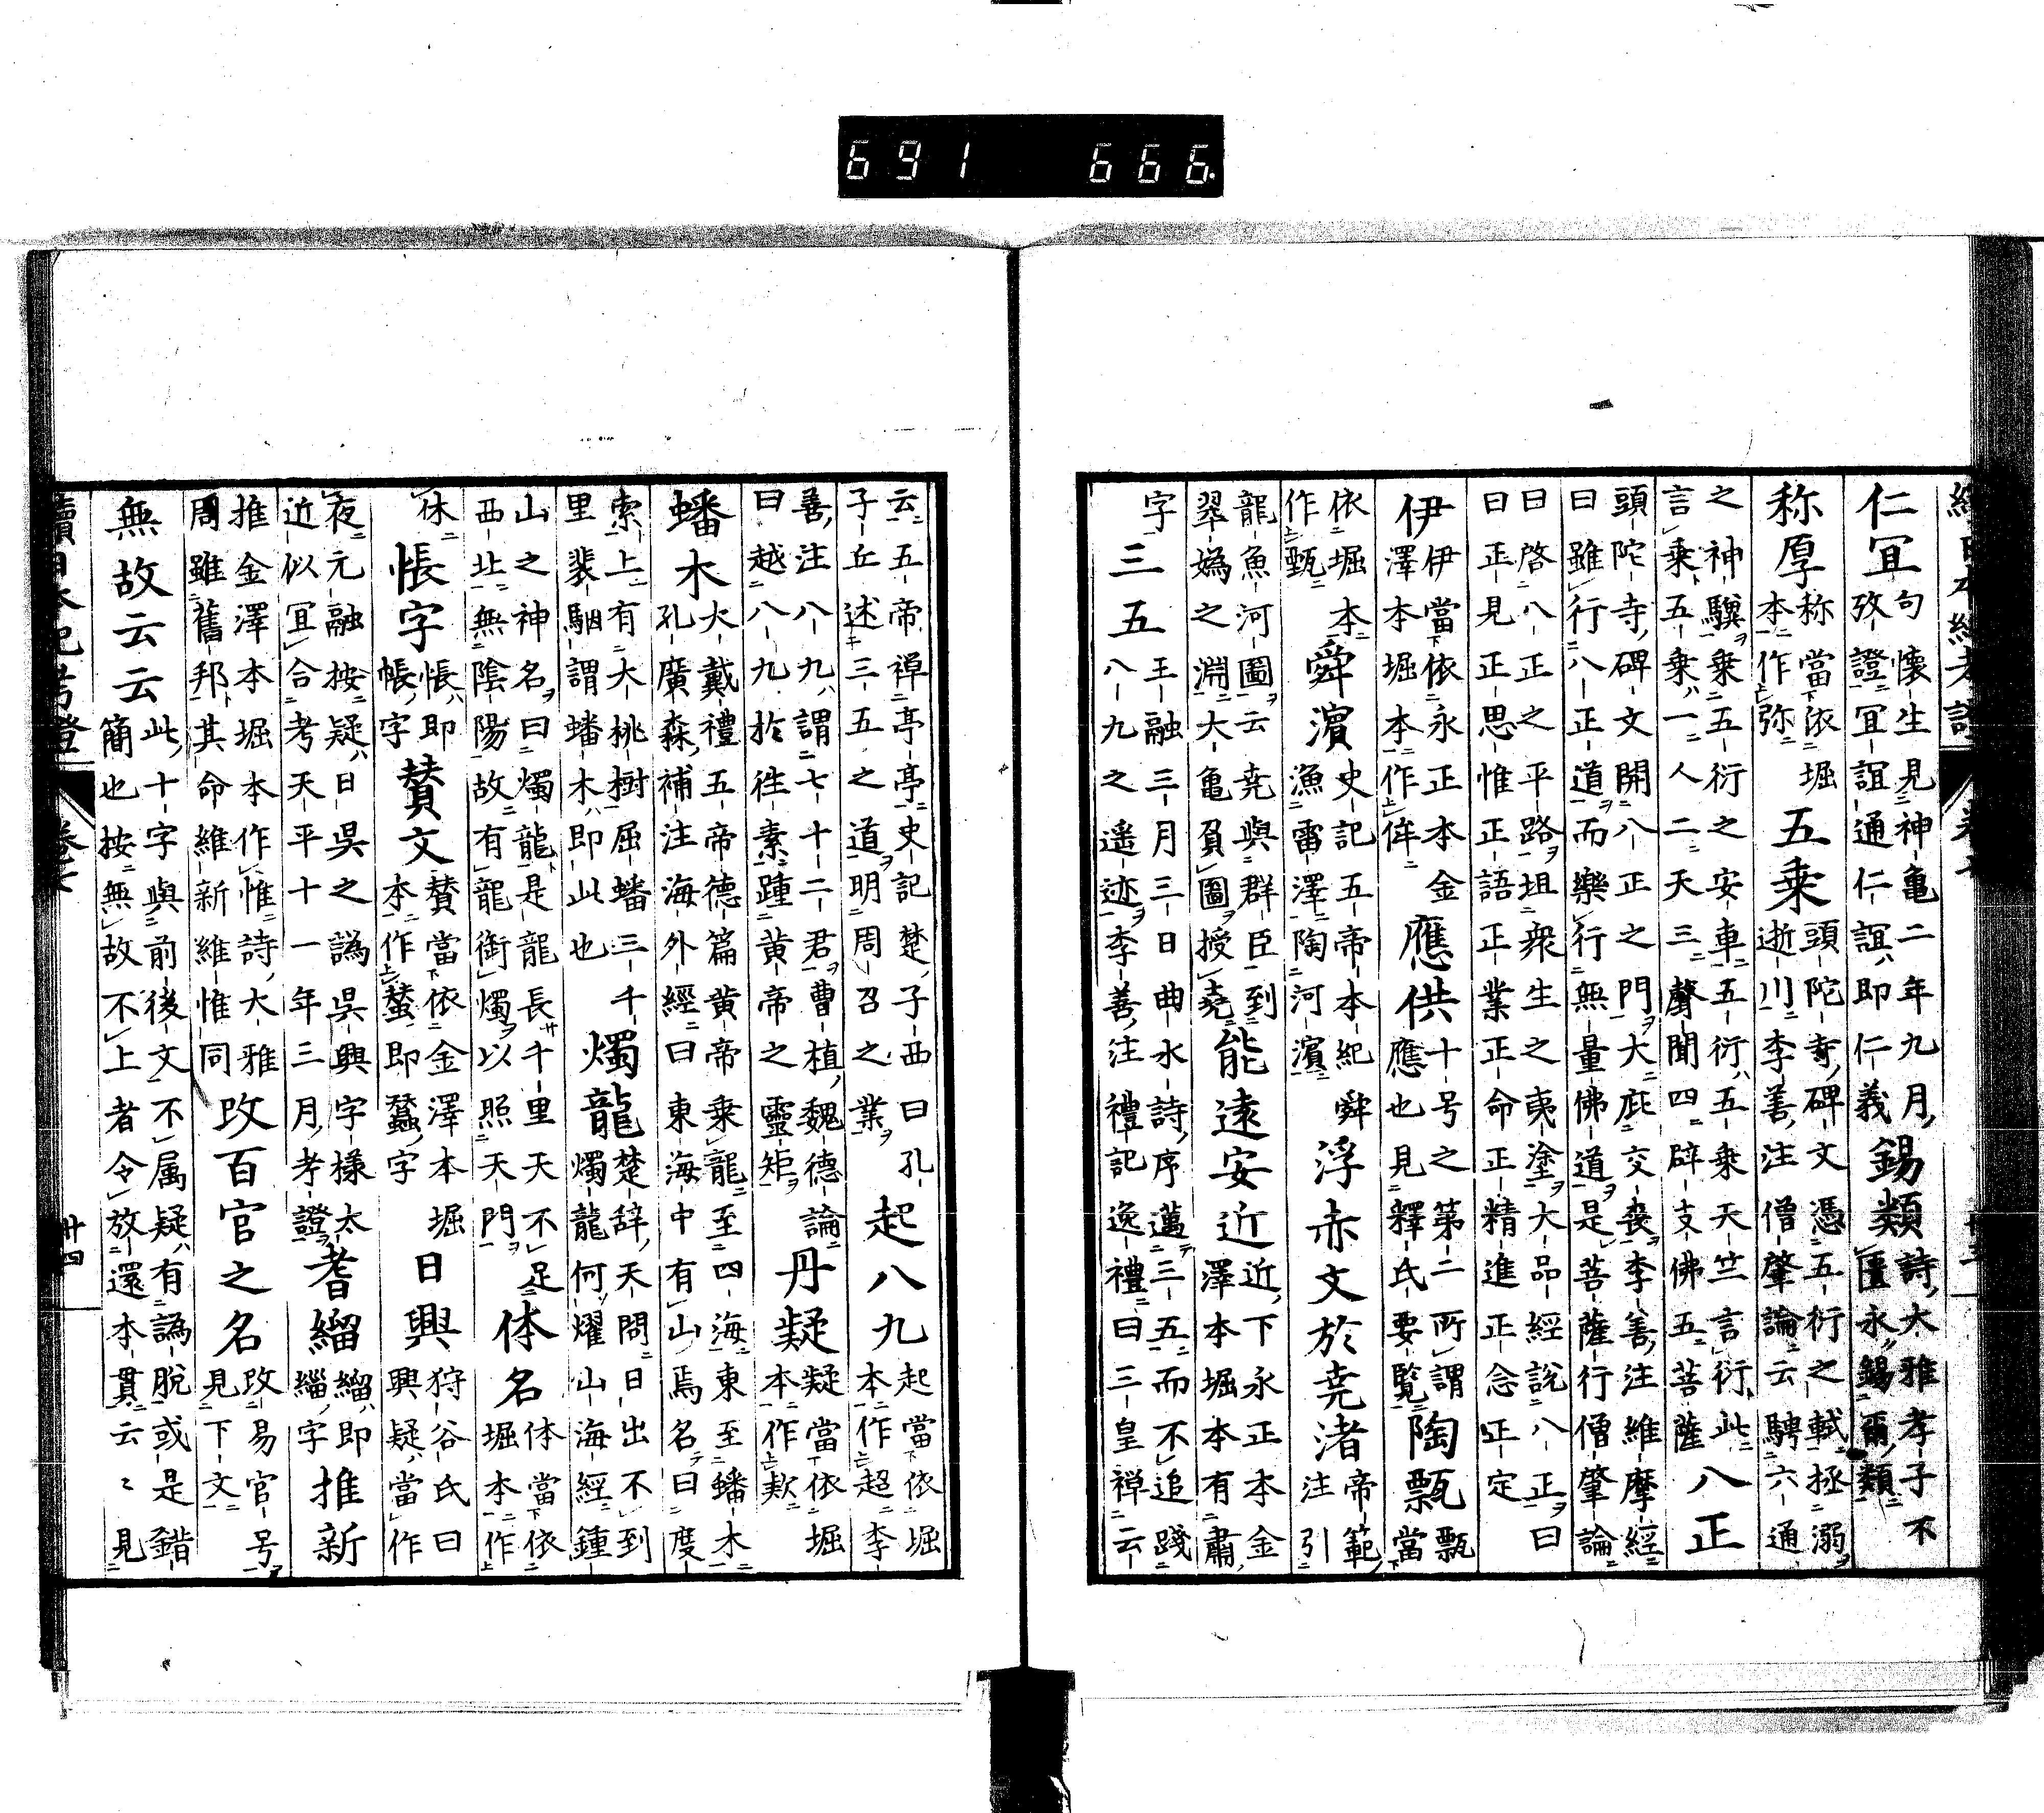 691 666.
仁宜句懷生見神龜二年九月錫類詩大雅孝子不
攷證宜誼通仁誼即仁義匱永錫爾類
称厚称當依堀五乗頭陀寺碑文憑五衍之軾拯溺
本作弥逝川李善注僧肇論云騁六通
之神驥乗五衍之安車五衍五乗天竺言衍此
言乗五乗一人二天三聲聞四辟支佛五菩薩八正
頭陀寺碑文開八正之門大庇交喪李善注維摩經
曰雖行八正道而樂行無量佛道是菩薩行僧肇論
曰啓八正之平路坦衆生之夷塗大品經説八正曰
曰正見正思惟正語正業正命正精進正念正定
伊伊當依永正本金應供十号之第二所謂陶甄甄
澤本堀本作侔應也見釋氏要覧當
依堀本舜濱史記五帝本紀舜浮赤文於堯渚帝範
作甄漁雷澤陶河濱注引
龍魚河圖云堯與群臣到能遠安近近下永正本金
翠嬀之淵大龜負圖授堯澤本堀本有肅
字三五王融三月三日曲水詩序邁三五而不追踐
八九之遥迹李善注禮記逸禮曰三皇禅云
云五帝禅亭亭史記楚子西曰孔起八九起當依堀
子丘述三五之道明周召之業本作超李
善注八九謂七十二君曹植魏德論丹疑疑當依堀
曰越八九於徃素踵黄帝之靈矩本作欵
蟠木大戴禮五帝德篇黄帝乗龍至四海東至蟠木
孔廣森補注海外經曰東海中有山焉名曰度
索上有大桃樹屈蟠三千燭龍楚辞天問日出不到
里裴駰謂蟠木即此也燭龍何燿山海經鍾
山之神名曰燭龍是龍長千里天不足体名体當依
西北無陰陽故有龍銜燭以照天門堀本作
休悵字悵即賛文賛當依金澤本堀日興狩谷氏曰
帳字本作蝅即蠶字興疑當作
夜元融按疑日呉之譌呉興字様太耆縚縚即推新
近似宜合考天平十一年三月考證緇字
推金澤本堀本作惟詩大雅攺百官之名攺易官号
周雖舊邦其命維新維惟同見下文
無故云云此十字與前後文不属疑有譌脱或是錯
簡也按無故不上者令放還本貫云〻見
續日本紀考證 卷七 廿四